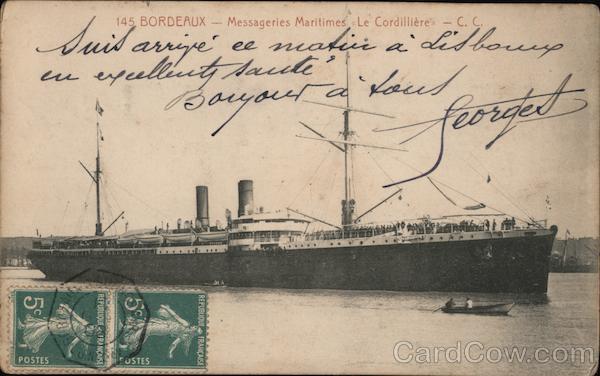 145 BORDEAUX — Messageries Maritimes "Le Cordillière" — C. C.
Suis arrivé ce matin à Lisbonne
en excellente santé
Bonjour à tous
Georges
5c 5c
POSTES POSTES
RÉPUBLIQUE FRANÇAISE
CardCow.com